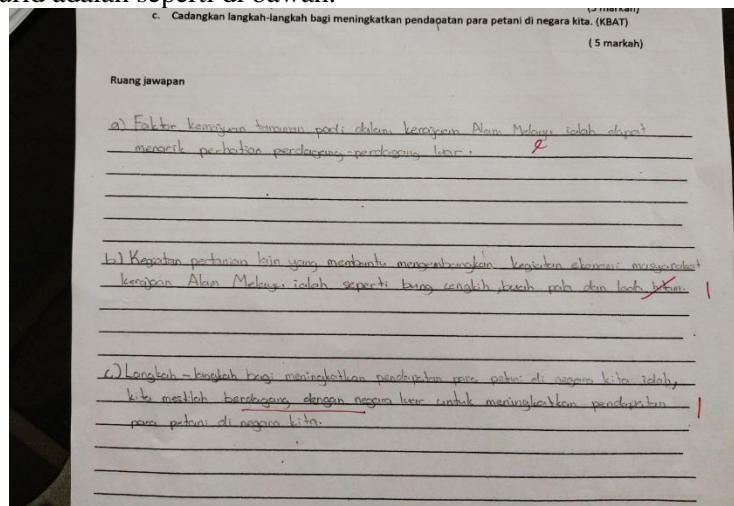 urid adalah seperti di bawah.
(5 markah)
c. Cadangkan langkah-langkah bagi meningkatkan pendapatan para petani di negara kita. (KBAT)
( 5 markah)
Ruang jawapan
a) Faktor kemajuan tanaman padi dalam kerajaan Alam Melayu ialah dapat
menarik perhatian perdagang-perdagang luar.
b) Kegiatan pertanian lain yang membantu mengembangkan kegiatan ekonomi masyarakat
kerajaan Alam Melayu ialah seperti bung cengkih, buah pala dan lada
1
c) Langkah-langkah bagi meningkatkan pendapatan para petani di negara kita ialah,
kita mestilah berdagang dengan negara luar untuk meningkatkan pendapatan
1
para petani di negara kita.